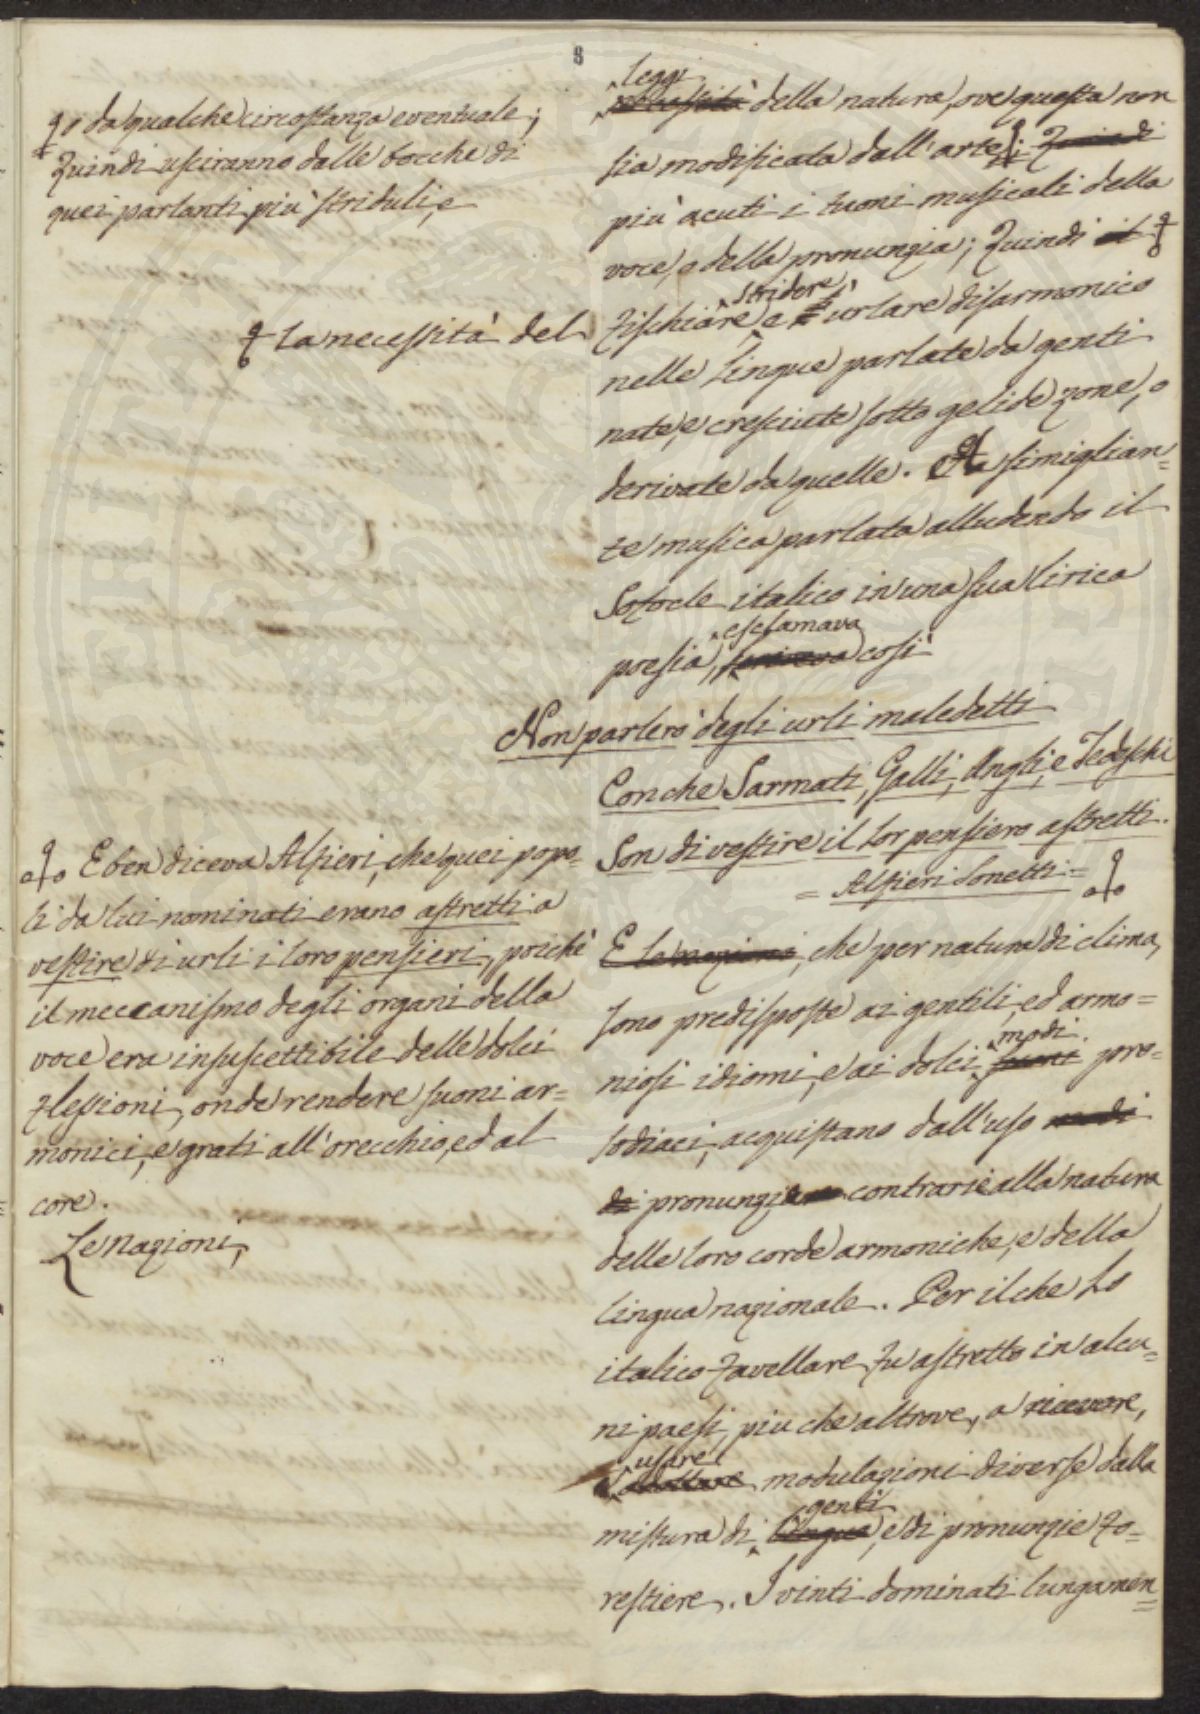 8
o da qualche circostanza eventuale;
Quindi usciranno dalle bocche di
quei parlanti più striduli, e
la necessità del
E ben diceva Alfieri, che quei popo-
li da lui nominati erano astretti a
vestire di urli i loro pensieri, poichè
il meccanismo degli organi della
voce era insuscettibile delle dolci
flessioni, onde rendere suoni ar=
monici, e grati all'orecchio, ed al
core.
Le nazioni,
leggi
necessità della natura, ove questa non
sia modificata dall'arte; Quindi
più acuti i tuoni musicali della
voce, e della pronunzia; Quindi il
stridere
fischiare e urlare disarmonico
nelle Lingue parlate da genti
nate, e cresciute sotto gelide zone, o
derivate da quelle. A simiglian=
te musica parlata alludendo il
Sofocle italico in una sua lirica
esclamava
poesia, scriveva così
Non parlerò degli urli maledetti
Con che Sarmati, Galli, Angli, e Tedeschi
Son di vestire il lor pensiero astretti.
= Alfieri Sonetti =
E le nazioni, che per natura di clima,
sono predisposte ai gentili, ed armo=
modi
niosi idiomi, e ai dolci suoni pro=
sodiaci, acquistano dall'uso modi
di pronunzie contrarie alla natura
delle loro corde armoniche, e della
lingua nazionale. Per il che lo
italico favellare fu astretto in alcu=
ni paesi, più che altrove, a ricevere,
usare
adottare modulazioni diverse dalla
genti
mistura di lingue, e di pronunzie fo=
restiere. I vinti dominati lungamen=